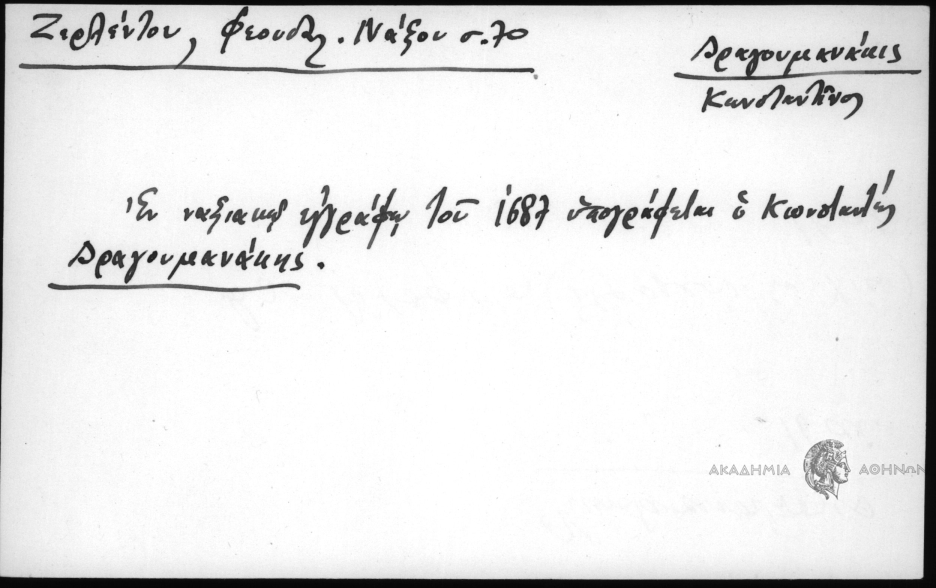 Ζερλέντου, Φεουδαλ. Νάξου σ. 70
Δραγουμανάκις
Κωνσταντῖνος
Ἐν ναξιακῷ ἐγγράφῳ τοῦ 1687 ὑπογράφεται ὁ Κωνσταντής
Δραγουμανάκης.
ΑΚΑΔΗΜΙΑ ΑΘΗΝΩΝ